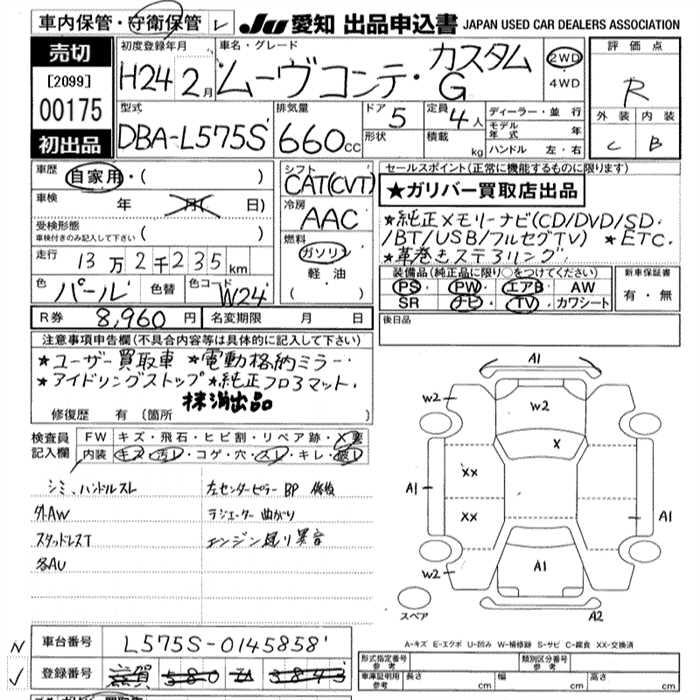 車内保管・守衛保管 レ
JU 愛知 出品申込書 JAPAN USED CAR DEALERS ASSOCIATION
売切
[2099]
00175
初出品
初度登録年月
H24 2月
車名・グレード
ムーヴコンテ・カスタムG
2WD
・
4WD
評価点
R
外装 内装
C B
型式
DBA-L575S
排気量
660cc
ドア 5
形状
定員 4人
積載 kg
ディーラー・並行
モデル年式 年
ハンドル 左・右
車歴
自家用・( )
車検 年 月( 日)
受検形態
車検付きのみ記入して下さい ( )
走行 13万2千235km
色 パール 色替 色コード W24
シフト
CAT(CVT)
冷房
AAC
燃料
ガソリン
軽油
セールスポイント(正常に機能するものに限ります)
★ガリバー買取店出品
★純正メモリーナビ(CD/DVD/SD・
/BT/USB/フルセグTV) ★ETC・
★革巻きステアリング
装備品(純正品に限り○をつけてください)
PS PW エアB AW
SR ナビ TV カワシート
新車保証書
有・無
後日品
R券 8,960円 名変期限 月 日
注意事項申告欄(不具合内容等は具体的に記入して下さい)
★ユーザー買取車 ★電動格納ミラー・
★アイドリングストップ ★純正フロアマット・
抹消出品
修復歴 有 (箇所 )
検査員
記入欄
FW キズ・飛石・ヒビ割・リペア跡・X要
内装 キズ・汚レ・コゲ・穴・スレ・キレ・破レ
シミ、ハンドルスレ
外AW
スタッドレスT
各AU
左センターピラー BP 修後
ラジエーター 曲がり
エンジン廻り異音
A1
W2
W2
X
XX
XX
A1
A1
A1
W2
A2
スペア
A-キズ E-エクボ U-凹み W-補修跡 S-サビ C-腐食 XX-交換済
N
車台番号 L575S-0145858
レ
登録番号 滋賀 580 3843
型式指定番号 参考
類別区分番号 参考
車庫証明用 参考
長さ cm 幅 cm 高さ cm